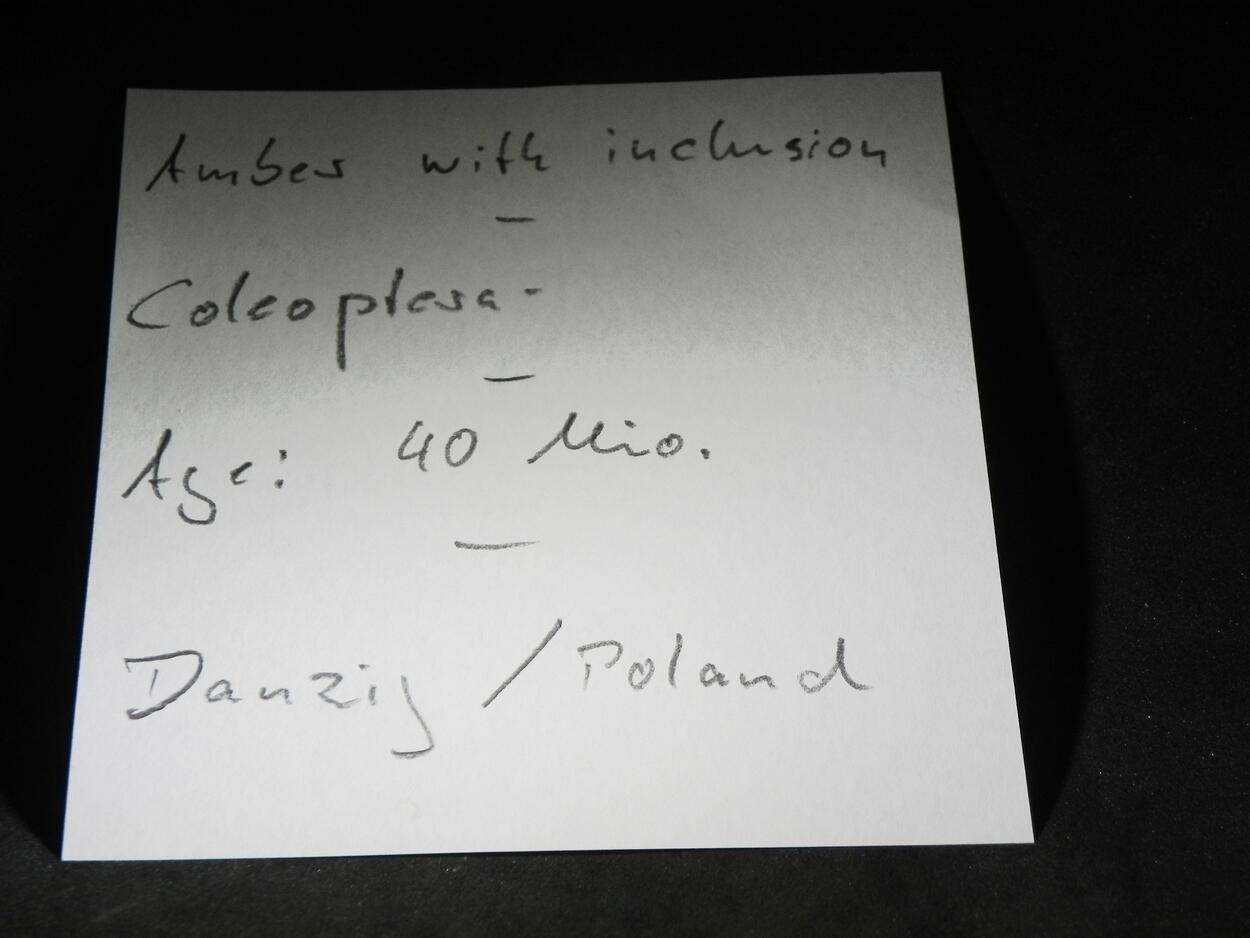 Amber with inclusion
—
Coleoptera-
—
Age: 40 Mio.
—
Danzig / Poland